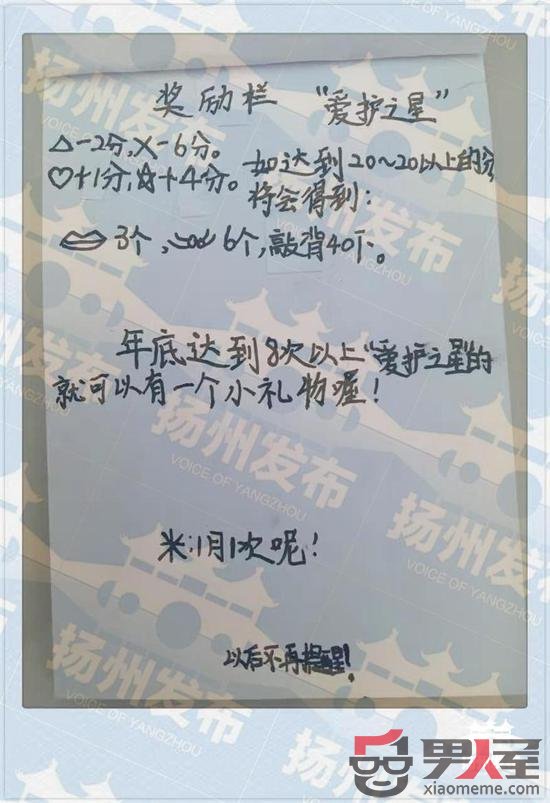 奖励栏 "爱护之星"
△-2分,X-6分。
♡+1分,☆+4分。如达到20~20以上的分
将会得到:
3个, 6个,敲背40下。
年底达到8次以上"爱护之星"的
就可以有一个小礼物喔!
米:1月1次呢!
以后不再提醒!
扬州发布
VOICE OF YANGZHOU
扬州发布
VOICE OF YANGZHOU
扬州发布
VOICE OF YANGZHOU
扬州发布
VOICE OF YANGZHOU
男人屋
xiaomeme.com